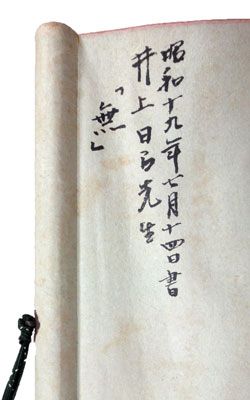 昭和十九年七月十四日書
井上日召先生
「無」